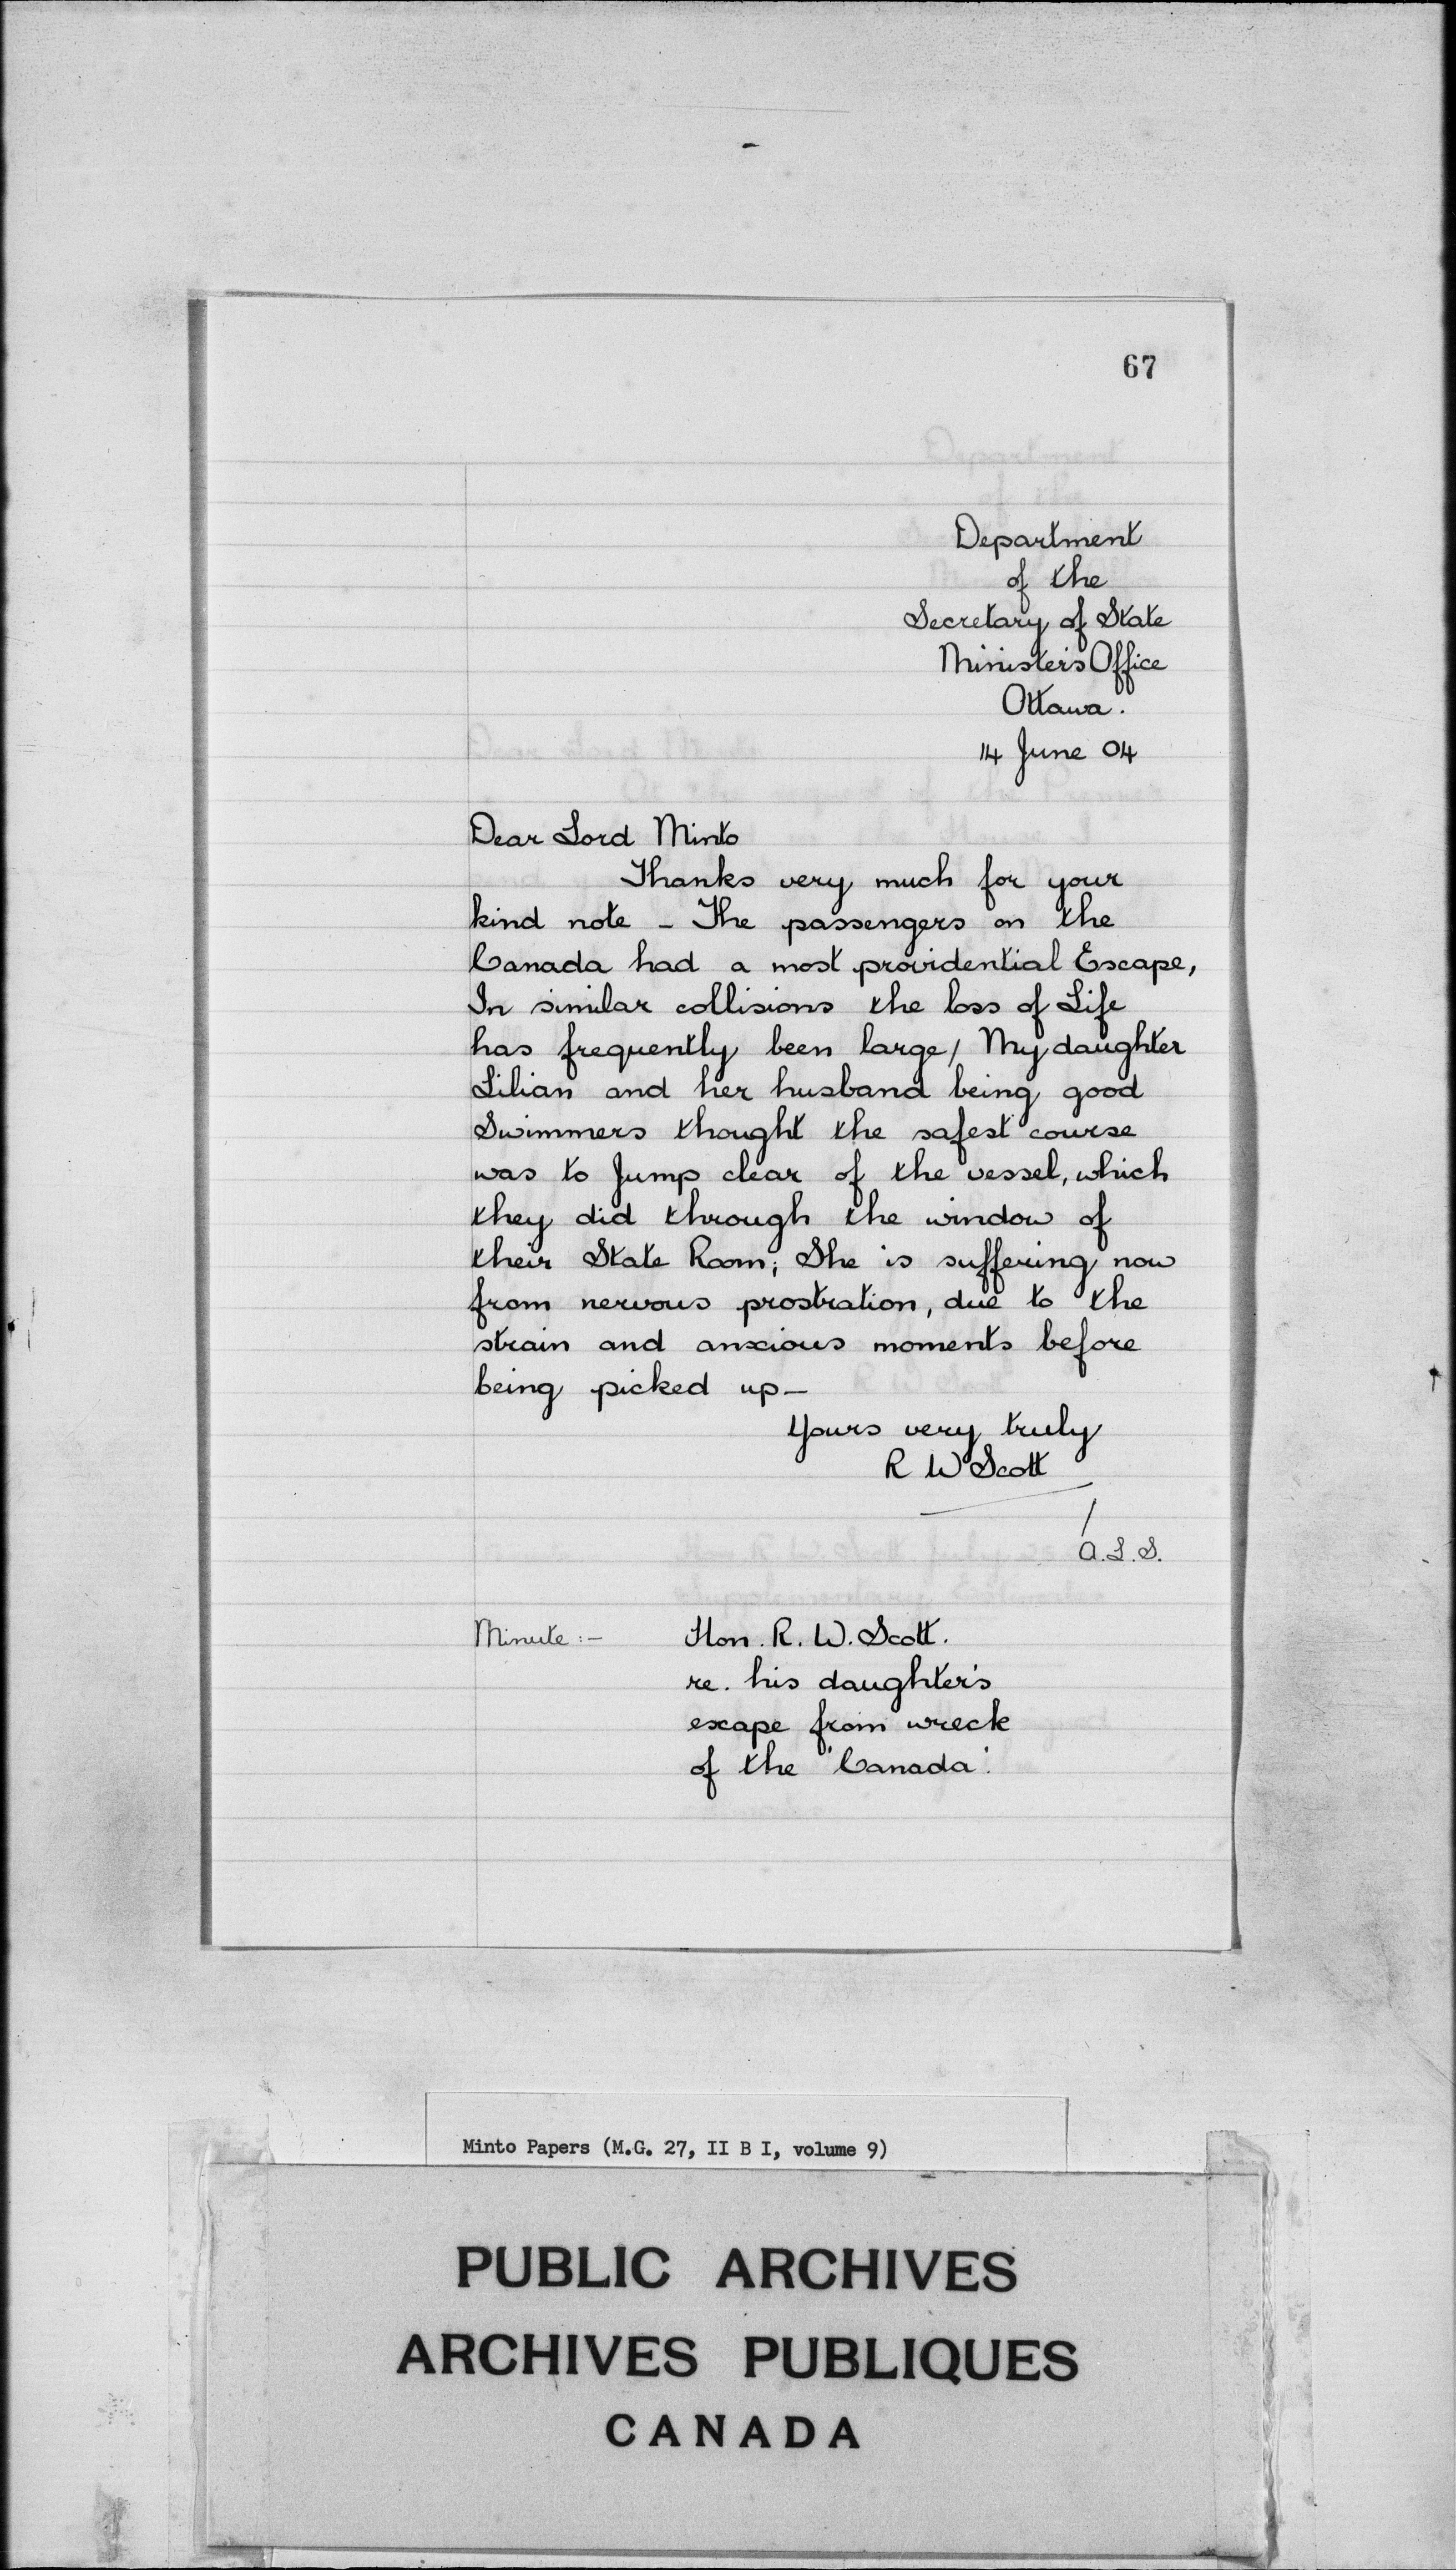 67
Department
of the
Secretary of State
Minister's Office
Ottawa.
14 June 04
Dear Lord Minto
Thanks very much for your
kind note - The passengers on the
Canada had a most providential Escape,
In similar collisions the loss of Life
has frequently been large, My daughter
Lilian and her husband being good
Swimmers thought the safest course
was to Jump clear of the vessel, which
they did through the window of
their State Room; She is suffering now
from nervous prostration, due to the
strain and anxious moments before
being picked up-
Yours very truly
R W Scott
A.L.S.
Minute :- Hon. R. W. Scott.
re. his daughter's
escape from wreck
of the "Canada".
Minto Papers (M.G. 27, II B I, volume 9)
PUBLIC ARCHIVES
ARCHIVES PUBLIQUES
CANADA